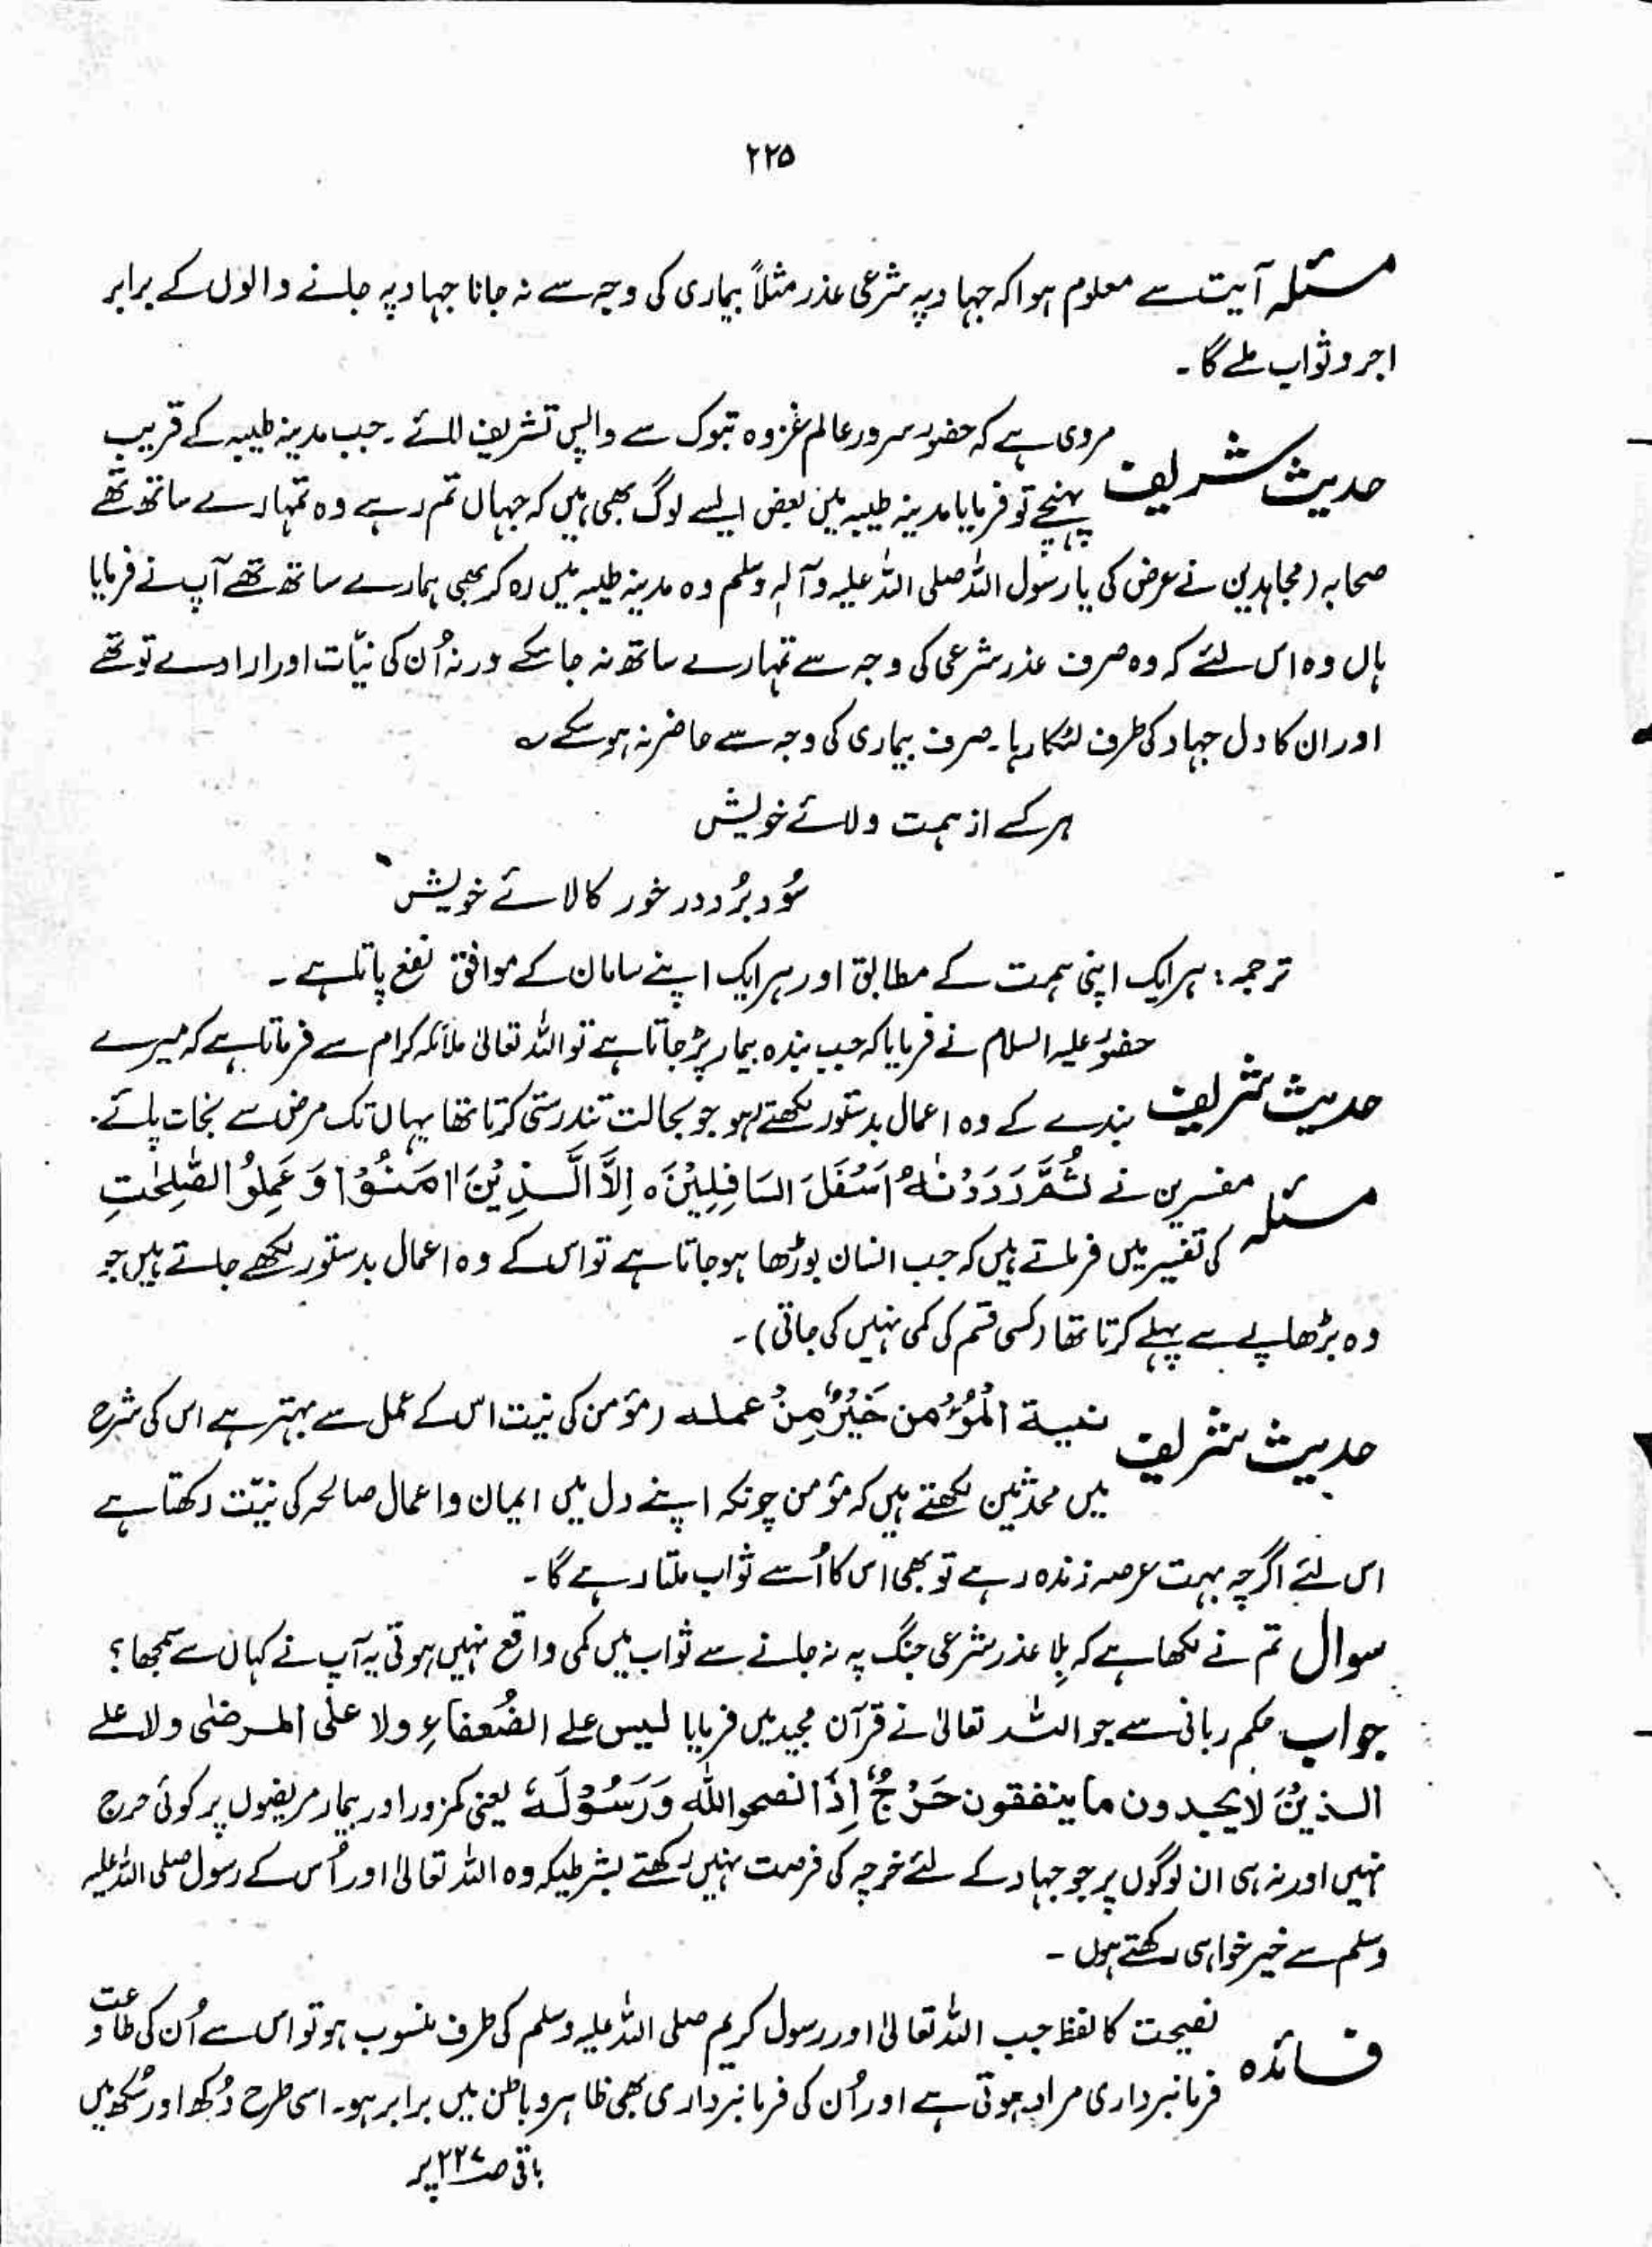 ۲۲۵
مسئلہ آیت سے معلوم ہوا کہ جہاد پہ شرعی عذر مثلاً بیماری کی وجہ سے نہ جانا جہاد پہ جانے والوں کے برابر
اجر و ثواب ملے گا۔
حدیث شریف مروی ہے کہ حضور سرور عالم غزوہ تبوک سے واپس تشریف لائے۔ جب مدینہ طیبہ کے قریب
پہنچے تو فرمایا مدینہ طیبہ میں بعض ایسے لوگ بھی ہیں کہ جہاں تم رہے وہ تمہارے ساتھ تھے
صحابہ (مجاہدین نے عرض کی یا رسول اللہ صلی اللہ علیہ وآلہٖ وسلم وہ مدینہ طیبہ میں رہ کر بھی ہمارے ساتھ تھے آپ نے فرمایا
ہاں وہ اس لئے کہ وہ صرف عذر شرعی کی وجہ سے تمہارے ساتھ نہ جا سکے ورنہ اُن کی نیّات اور ارادے تو تھے
اور ان کا دل جہاد کی طرف لٹکا رہا۔ صرف بیماری کی وجہ سے حاضر نہ ہو سکے ؎
ہر کسے از ہمت ولائے خویش
سُود بُرد در خور کالائے خویش
ترجمہ: ہر ایک اپنی ہمت کے مطابق اور ہر ایک اپنے سامان کے موافق نفع پاتا ہے۔
حدیث شریف حضورؑ علیہ السلام نے فرمایا کہ جب بندہ بیمار پڑ جاتا ہے تو اللہ تعالیٰ ملائکہ کرام سے فرماتا ہے کہ میرے
بندے کے وہ اعمال بدستور لکھتے رہو جو بحالت تندرستی کرتا تھا یہاں تک مرض سے نجات پائے۔
مسئلہ مفسرین نے ثُمَّ رَدَدْنٰهُ اَسْفَلَ السَافِلِیْنَ ہ اِلَّا الَّذِیْنَ اٰمَنُوْا وَ عَمِلُوا الصّٰلِحٰتِ
کی تفسیر میں فرماتے ہیں کہ جب انسان بوڑھا ہو جاتا ہے تو اس کے وہ اعمال بدستور لکھے جاتے ہیں جو
وہ بڑھاپے سے پہلے کرتا تھا (کسی قسم کی کمی نہیں کی جاتی)۔
حدیث شریف نیة المُؤْمن خَیْرٌ مِنْ عمله (مؤمن کی نیت اس کے عمل سے بہتر ہے اس کی شرح
میں محدثین لکھتے ہیں کہ مؤمن چونکہ اپنے دل میں ایمان و اعمال صالحہ کی نیّت رکھتا ہے
اس لئے اگرچہ بہت عرصہ زندہ رہے تو بھی اس کا اُسے ثواب ملتا رہے گا۔
سوال تم نے لکھا ہے کہ بِلا عذر شرعی جنگ پہ نہ جانے سے ثواب میں کمی واقع نہیں ہوتی یہ آپ نے کہاں سے سمجھا؟
جواب حکم ربانی سے جو اللہ تعالیٰ نے قرآن مجید میں فرمایا لیس علی الضُعفاءِ ولا علی المرضٰی ولا علے
الذیْنَ لا یجدون ما ینفقون حَرَجٌ اِذَا نصحوا الله وَرَسُوْلَهٗ یعنی کمزور اور بیمار مریضوں پر کوئی حرج
نہیں اور نہ ہی ان لوگوں پر جو جہاد کے لئے خرچہ کی فرصت نہیں رکھتے بشرطیکہ وہ اللہ تعالیٰ اور اُس کے رسول صلی اللہ علیہ
وسلم سے خیر خواہی رکھتے ہوں۔
فائدہ نصیحت کا لفظ جب اللہ تعالیٰ اور رسول کریم صلی اللہ علیہ وسلم کی طرف منسوب ہو تو اس سے اُن کی طاعت و
فرمانبرداری مراد ہوتی ہے اور اُن کی فرمانبرداری بھی ظاہر و باطن میں برابر ہو۔ اسی طرح دُکھ اور سُکھ میں
باقی ص ۲۲۷ پر